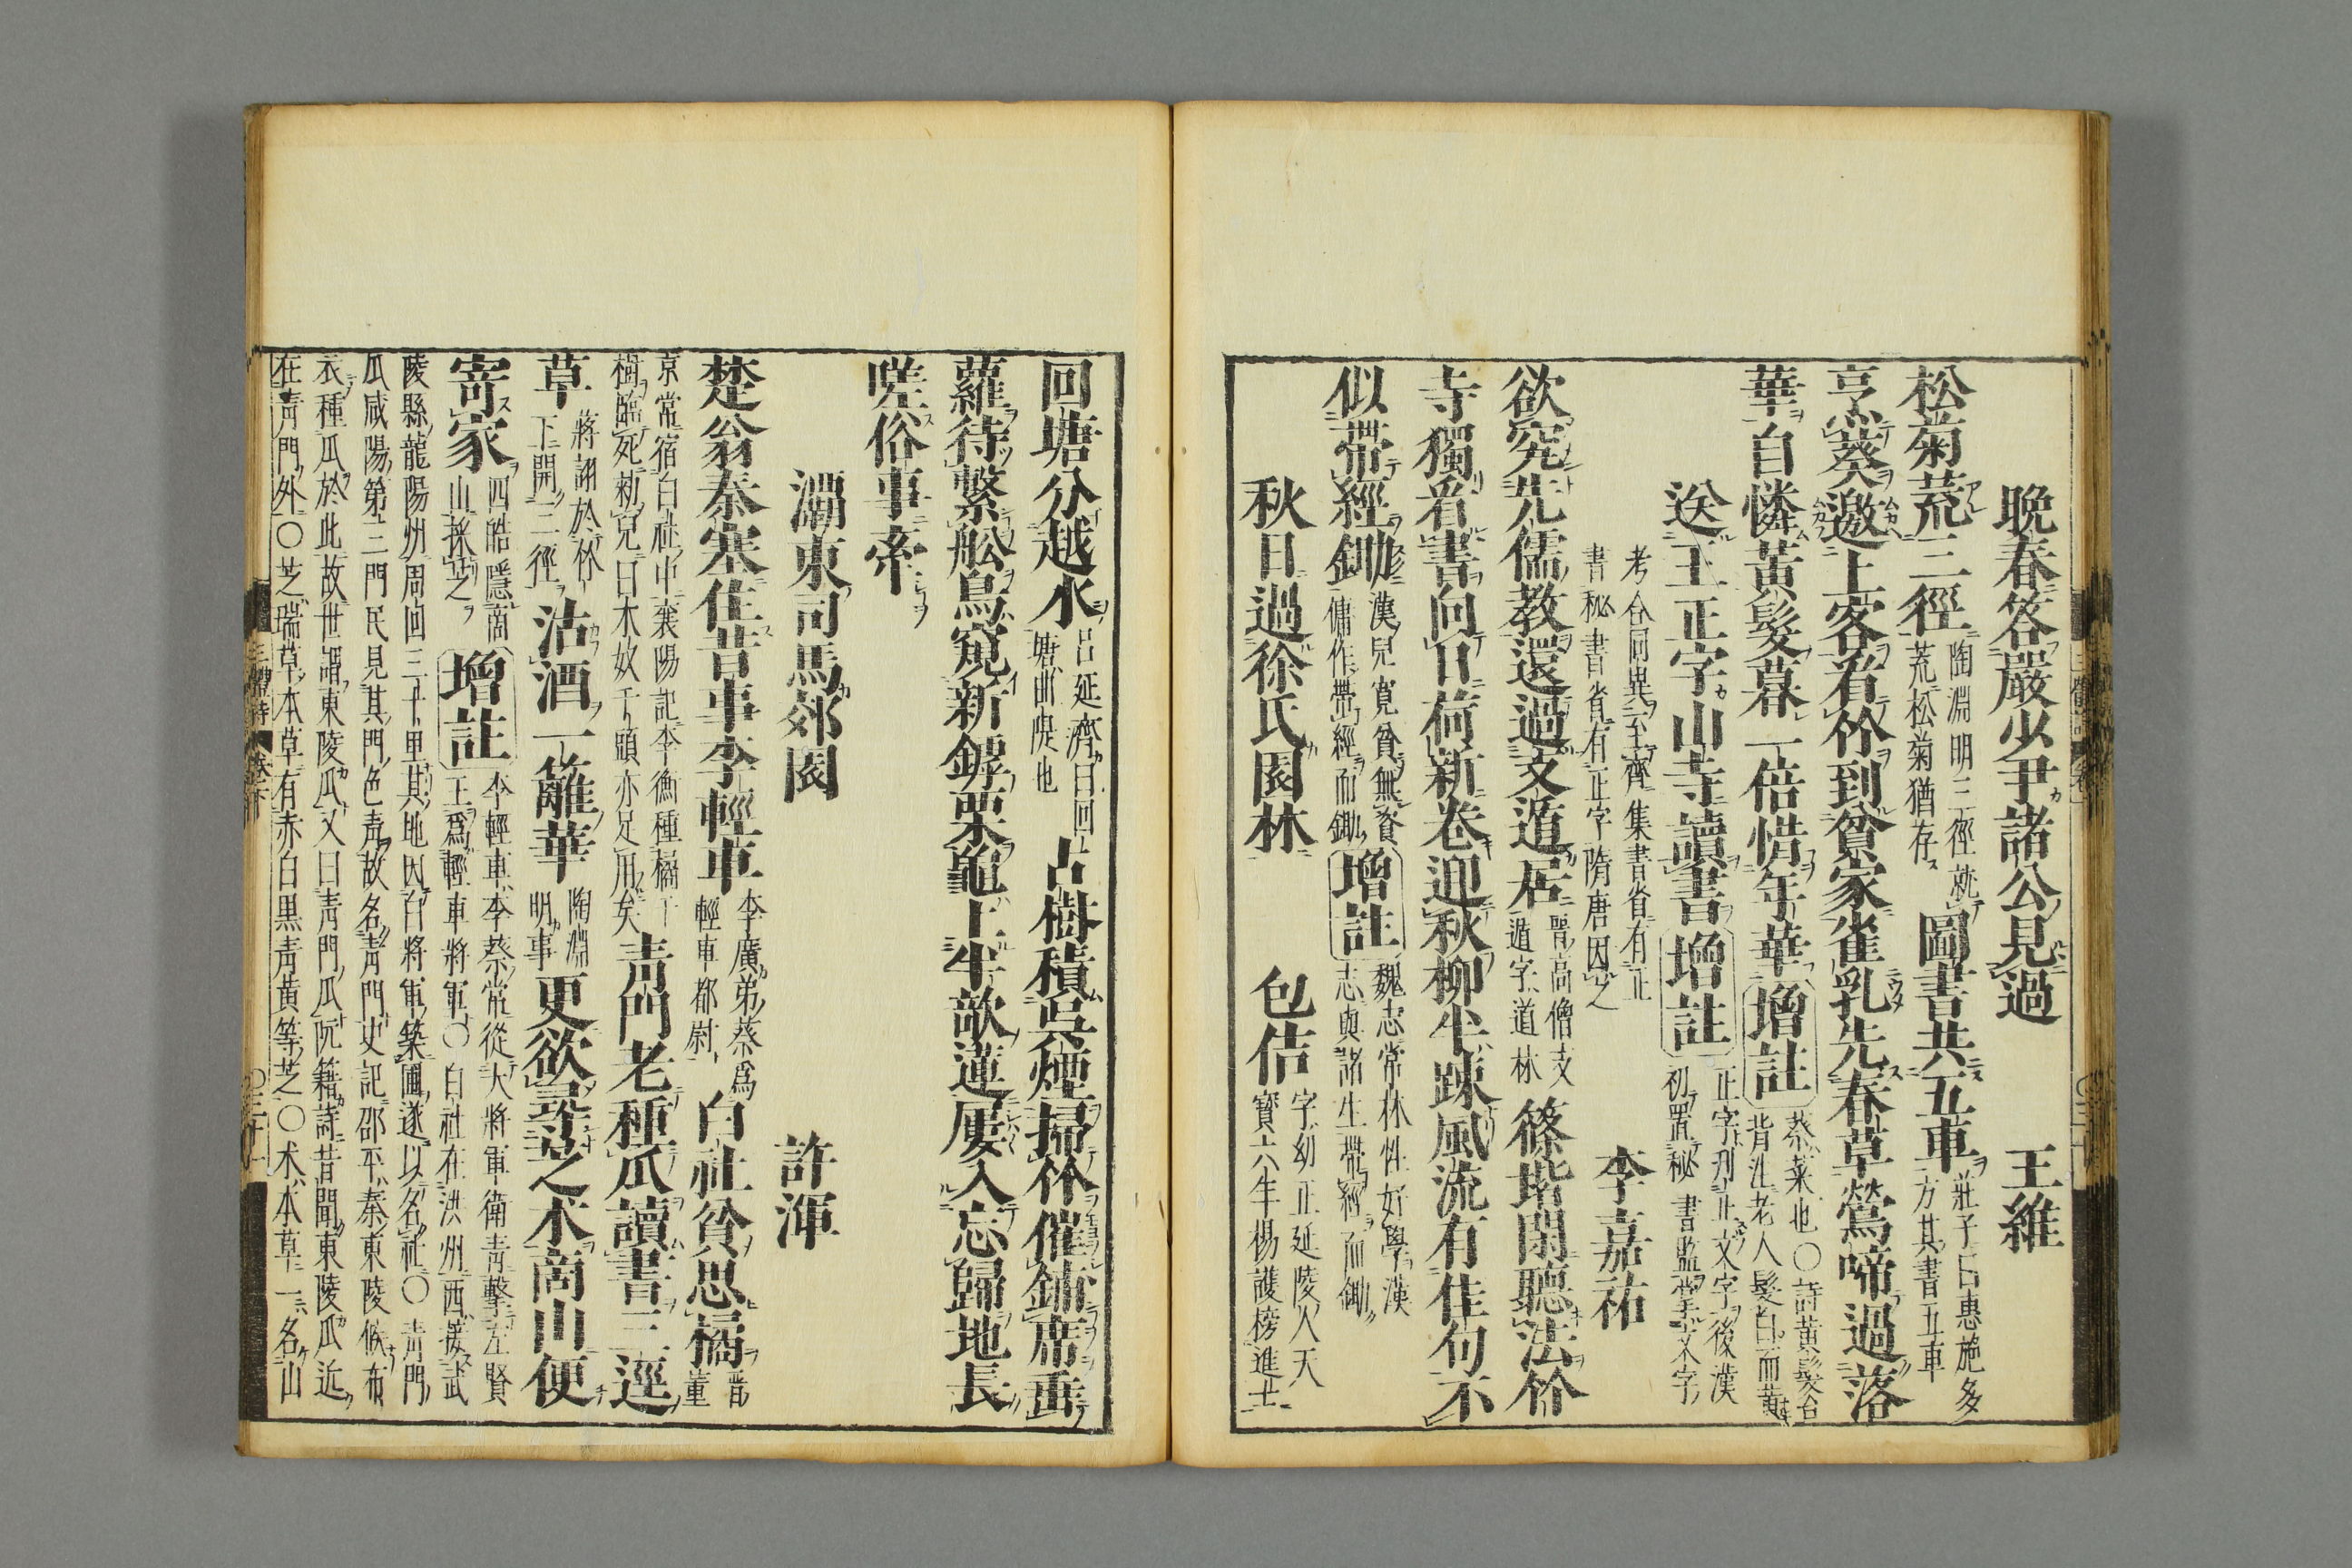 晚春答嚴少尹諸公見過　王維
松菊荒三徑
陶淵明三徑就
荒松菊猶存
圖書共五車
莊子曰惠施多
方其書五車
亨葵邀上客看竹到貧家雀乳先春草鶯啼過落
華自憐黃髮暮一倍惜年華
增註
葵菜也〇詩黃髮台
背注老人髮白而黃
送王正字山寺讀書
增註
正字刋正文字後漢
初置秘書監掌文字
考合同異至齊集書省有正
書秘書省有正字隋唐因之
李嘉祐
欲究先儒教還過支遁居
晉高僧支
遁字道林
篠堦閑聽法竹
寺獨看書向日荷新卷迎秋柳半疎風流有佳句不
似帶經鋤
漢兒寬貧無資
傭作帶經而鋤
增註
魏志常林性好學漢
志與諸生帶經而鋤
秋日過徐氏園林　包佶
字幼正延陵人天
寶六年楊護榜進士
回塘分越水
呂延濟曰回
塘曲隄也
古樹積吳煙掃竹催鋪席垂
蘿待繫舩鳥窺新罅栗龜上半欹蓮屢入忘歸地長
嗟俗事牽
灞東司馬郊園　許渾
楚翁秦塞住昔事李輕車
李廣弟蔡爲
輕車都尉
白社貧思橘
晉董
京常宿白社中襄陽記李衡種橘千
樹臨死勑兒曰木奴千頭亦足用矣
青門老種瓜讀書三逕
草
蔣詡於竹
下開三徑
沽酒一籬華
陶淵
明事
更欲尋芝术商山便
寄家
四皓隱商
山採芝
增註
李輕車李蔡常從大將軍衛青擊左賢
王爲輕車將軍〇白社在洪州西接武
陵縣龍陽州周回三十里其地因白將軍築圃遂以名社〇青門
瓜咸陽第三門民見其門色青故名青門史記邵平秦東陵候布
衣種瓜於此故世謂東陵瓜又曰青門瓜阮籍詩昔聞東陵瓜近
在青門外〇芝瑞草本草有赤白黑青黃等芝〇术本草一名山